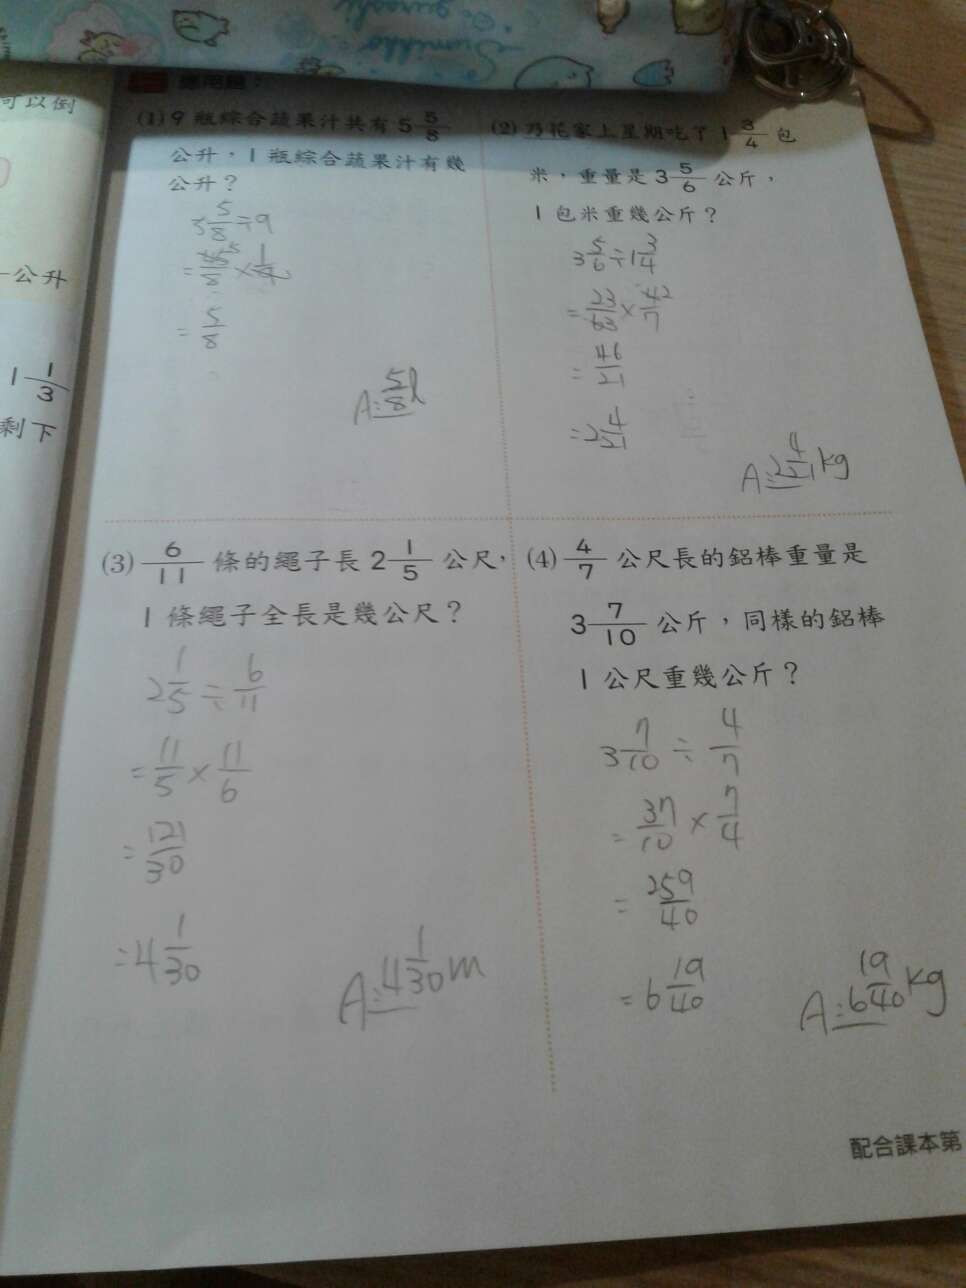 可以倒
公升
1 1/3
剩下
應用題：
(1) 9 瓶綜合蔬果汁共有 5 5/8
公升，1 瓶綜合蔬果汁有幾
公升？
5 5/8 ÷ 9
= 45/8 5 × 1/9
= 5/8
A: 5/8 l
(2) 乃花家上星期吃了 1 3/4 包
米，重量是 3 5/6 公斤，
1 包米重幾公斤？
3 5/6 ÷ 1 3/4
= 23/6 3 × 4 2/7
= 46/21
= 2 4/21
A: 2 4/21 kg
(3) 6/11 條的繩子長 2 1/5 公尺，
1 條繩子全長是幾公尺？
2 1/5 ÷ 6/11
= 11/5 × 11/6
= 121/30
= 4 1/30
A: 4 1/30 m
(4) 4/7 公尺長的鋁棒重量是
3 7/10 公斤，同樣的鋁棒
1 公尺重幾公斤？
3 7/10 ÷ 4/7
= 37/10 × 7/4
= 259/40
= 6 19/40
A: 6 19/40 kg
配合課本第